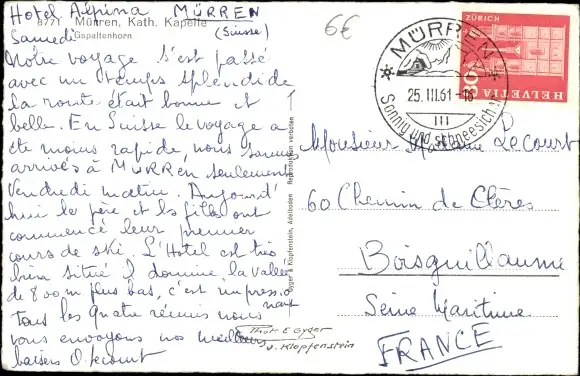 Hotel Alpina MÜRREN
8771 Mürren, Kath. Kapelle
Gspaltenhorn
(Suisse)
Samedi
Notre voyage s'est passé
avec un temps splendide
la route était bonne et
belle. En Suisse le voyage a
été moins rapide, nous sommes
arrivés à MÜRREN seulement
Vendredi matin. Aujourd'
hui le père et la fille ont
commencé leur premier
cours de ski. L'Hotel est très
bien situé il domine la vallée
de 800 m plus bas, c'est impressio
nant
Tous les quatre réunis nous
vous envoyons nos meilleurs
baisers
Phot. E Gyger
u. Klopfenstein
Gyger & Klopfenstein, Adelboden Reproduktion verboten
6€
MÜRREN
25.III.61-16
III
Sonnig und schneesich
ZÜRICH
HELVETIA
Monsieur Lecourt
60 Chemin de Clères
Boisguillaume
Seine Maritime
FRANCE